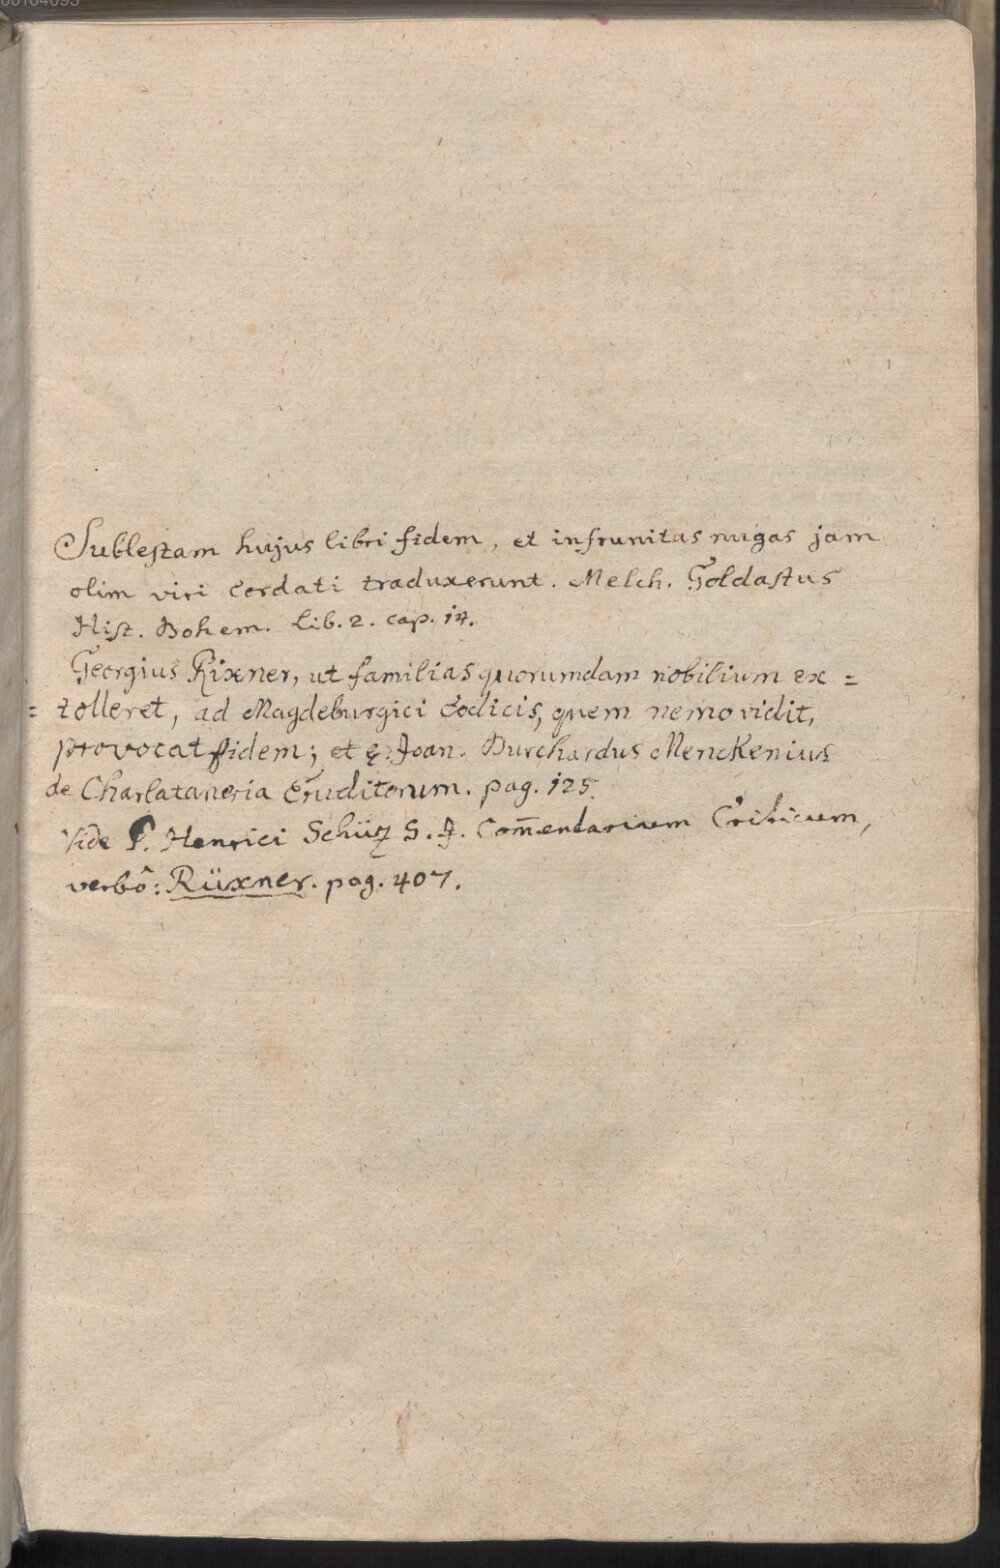 Sublestam hujus libri fidem, et infrunitas nugas jam
olim viri cordati traduxerunt. Melch. Goldastus
Hist. Bohem. Lib. 2. cap. 14.
Georgius Rixner, ut familias quorumdam nobilium ex=
=tolleret, ad Magdeburgici Codicis, quem nemo vidit,
provocat fidem; et Joan. Burchardus Menckenius
de Charlataneria Eruditorum. pag. 125.
Vide P. Henrici Schüz S. J. Com̅entarium Criticum,
verbô: Rüxner. pag. 407.